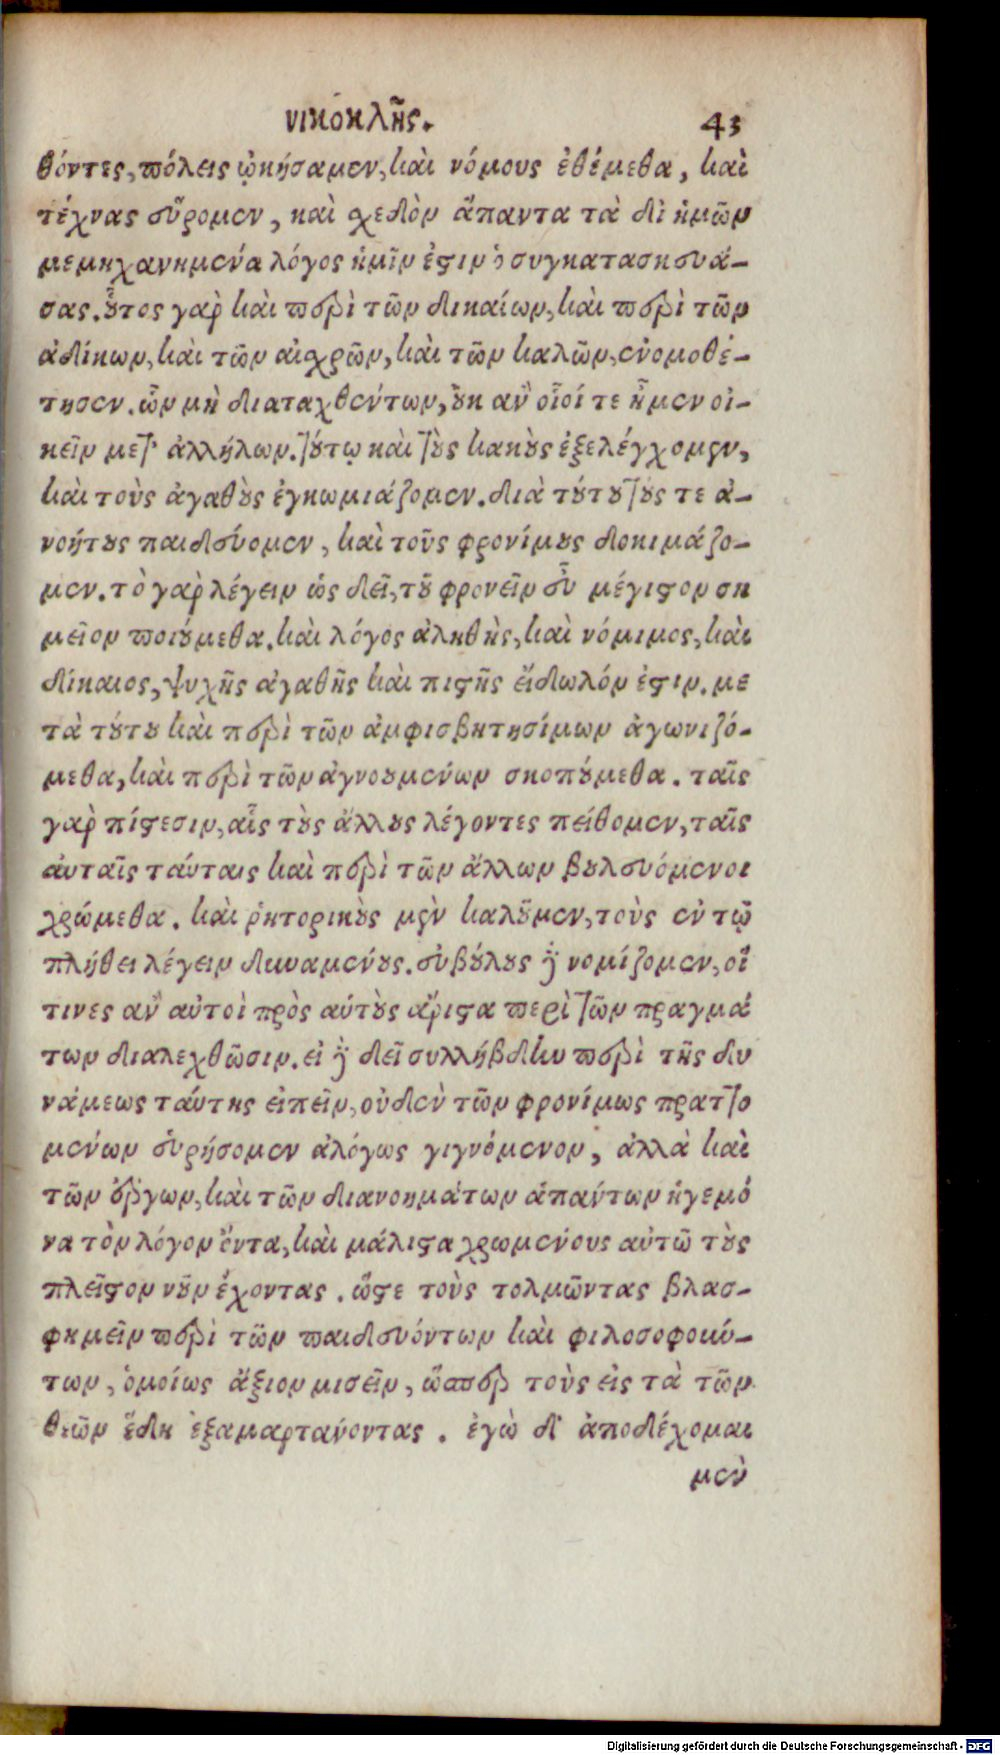 νικοκλῆς. 43
θόντες, πόλεις ᾠκήσαμεν, καὶ νόμους ἐθέμεθα, καὶ
τέχνας εὕρομεν, καὶ σχεδὸν ἅπαντα τὰ δι ἡμῶν
μεμηχανημένα λόγος ἡμῖν ἐστιν ὁ συγκατασκευά-
σας. οὗτος γὰρ καὶ περὶ τῶν δικαίων, καὶ περὶ τῶν
ἀδίκων, καὶ τῶν αἰσχρῶν, καὶ τῶν καλῶν, ἐνομοθέ-
τησεν. ὧν μὴ διαταχθέντων, οὐκ ἂν οἷοί τε ἦμεν οἰ-
κεῖν μετ' ἀλλήλων. τούτῳ καὶ τοὺς κακοὺς ἐξελέγχομεν,
καὶ τοὺς ἀγαθοὺς ἐγκωμιάζομεν. διὰ τούτου τούς τε ἀ-
νοήτους παιδεύομεν, καὶ τοῦς φρονίμους δοκιμάζο-
μεν. τὸ γὰρ λέγειν ὡς δεῖ, τοῦ φρονεῖν εὖ μέγιστον ση
μεῖον ποιούμεθα. καὶ λόγος ἀληθὴς, καὶ νόμιμος, καὶ
δίκαιος, ψυχῆς ἀγαθῆς καὶ πιστῆς εἴδωλόν ἐστιν. με
τὰ τούτου καὶ περὶ τῶν ἀμφισβητησίμων ἀγωνιζό-
μεθα, καὶ περὶ τῶν ἀγνοουμένων σκοπούμεθα. ταῖς
γὰρ πίστεσιν, αἷς τοὺς ἄλλους λέγοντες πείθομεν, ταῖς
αὐταῖς ταύταις καὶ περὶ τῶν ἄλλων βουλευόμενοι
χρώμεθα. καὶ ῥητορικοὺς μὲν καλοῦμεν, τοὺς ἐν τῷ
πλήθει λέγειν δυναμένους. συβούλους δὲ νομίζομεν, οἵ
τινες ἂν αὐτοὶ πρὸς αὑτοὺς ἄριστα περὶ τῶν πραγμά
των διαλεχθῶσιν. εἰ δὲ δεῖ συλλήβδην περὶ τῆς δυ
νάμεως ταύτης εἰπεῖν, οὐδὲν τῶν φρονίμως πραττο
μένων εὑρήσομεν ἀλόγως γιγνόμενον, ἀλλὰ καὶ
τῶν ἔργων, καὶ τῶν διανοημάτων ἁπάντων ἡγεμό
να τὸν λόγον ὄντα, καὶ μάλιστα χρωμένους αὐτῶ τοὺς
πλεῖστον νοῦν ἔχοντας. ὥστε τοὺς τολμῶντας βλασ-
φημεῖν περὶ τῶν παιδευόντων καὶ φιλοσοφούν-
των, ὁμοίως ἄξιον μισεῖν, ὥσπερ τοὺς εἰς τὰ τῶν
θεῶν ἕδη ἐξαμαρτανόντας. ἐγὼ δ' ἀποδέχομαι
μὲν
Digitalisierung gefördert durch die Deutsche Forschungsgemeinschaft - DFG